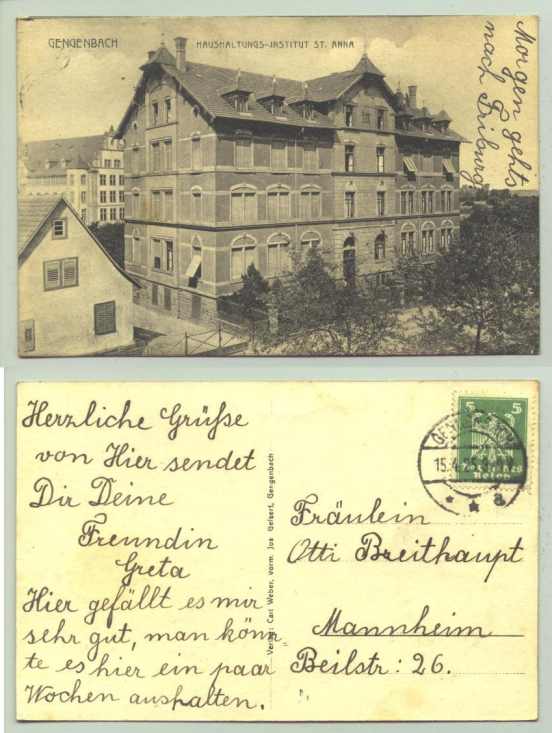 GENGENBACH
HAUSHALTUNGS-INSTITUT ST. ANNA
Morgen gehts
nach Friburg
Herzliche Grüße
von Hier sendet
Dir Deine
Freundin
Greta
Hier gefällt es mir
sehr gut, man könn
te es hier ein paar
Wochen aushalten.
Verlag: Carl Weber, vorm. Jos Geisert, Gengenbach
5 5
Deutsches
Reich
GENGENBACH
15.4.25
a
Fräulein
Otti Breithaupt
Mannheim
Beilstr: 26.